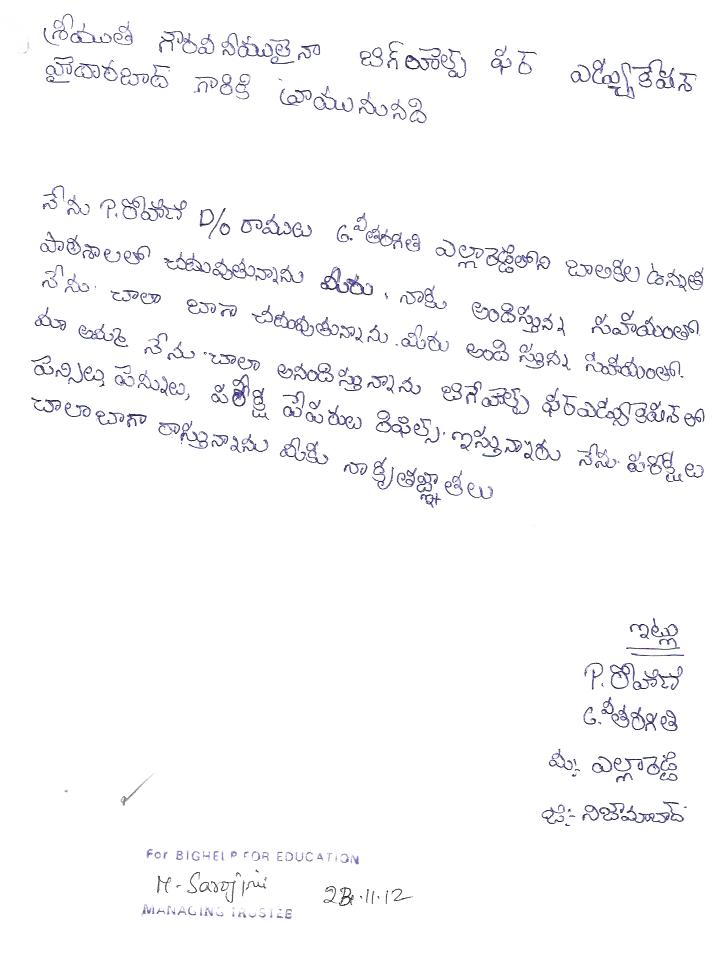 శ్రీయుత గౌరవనీయులైనా బిగ్‌హెల్ప్ ఫర్ ఎడ్యుకేషన్
హైదారబాద్ గారికి వ్రాయునునది
నేను P.రోహిణి D/o రాములు 6.వ తరగతి ఎల్లారెడ్డిలోని బాలికల ఉన్నత
పాఠశాలలో చదువుతున్నాను మీరు, నాకు అందిస్తున్న సహాయంతో
నేను చాలా బాగా చదువుతున్నాను. మీరు అంది స్తున్న సహాయంతో.
మా అమ్మ నేను చాలా అనందిస్తున్నాను బిగ్‌హెల్ప్ ఫర్ఎడ్యుకేషన్‌లో
పెన్సిల్లు, పెన్నులు, పరీక్ష పేపరులు రిఫిల్స్ ఇస్తున్నారు నేను పరీక్షలు
చాలాబాగా రాస్తున్నాను మీకు నా కృతజ్ఞాతలు
ఇట్లు
P.రోహిణి
6.వ తరగతి
మ: ఎల్లారెడ్డి
జి:- నిజామాబాద్
For BIGHELP FOR EDUCATION
M. Sarojini 28.11.12
MANAGING TRUSTEE